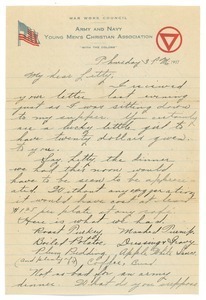 WAR WORK COUNCIL
ARMY AND NAVY
YOUNG MEN'S CHRISTIAN ASSOCIATION
"WITH THE COLORS"
Thursday
My dear Letty,
I received
your letter last evening
just as I was sitting down
to my supper. You certainly
are a lucky little girl to
have twenty dollars given
to you.
Say Letty the dinner
we had this noon would
have to be seen to be appreci
ated. Without any exaggeration
it would have cost at least
per plate at any
Here is what we had
Roast Turkey, Mashed Turnips
Boiled Potatoes, Dressing & Gravy
Plum Pudding, Apple
Coffee,
Not so bad for an army
dinner. What do you suppose